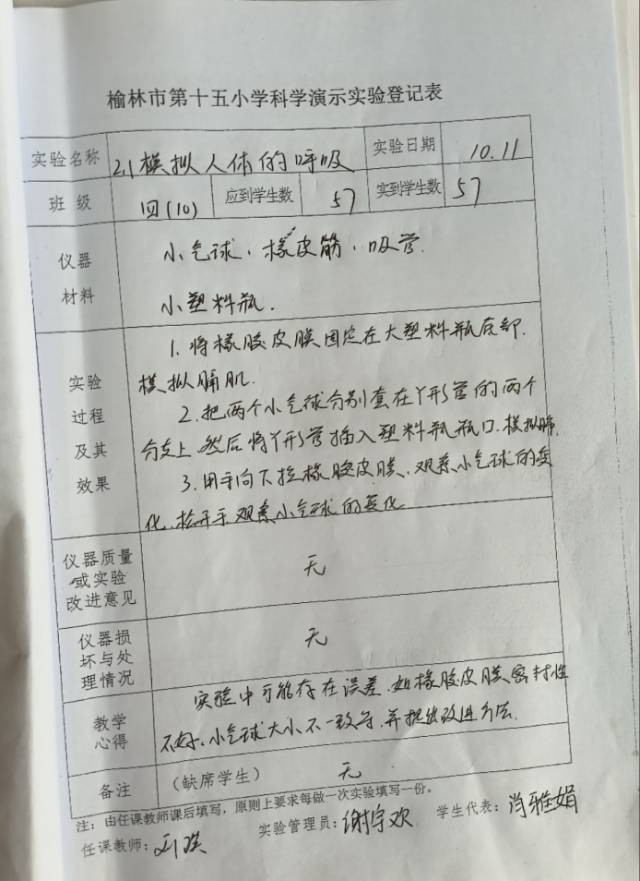 榆林市第十五小学科学演示实验登记表
实验名称 2.1模拟人体的呼吸 实验日期 10.11
班级 四(10) 应到学生数 57 实到学生数 57
仪器材料 小气球、橡皮筋、吸管.
小塑料瓶.
实验过程及其效果
1.将橡胶皮膜固定在大塑料瓶底部.
模拟膈肌.
2.把两个小气球分别套在丫形管的两个
分支上.然后将丫形管插入塑料瓶瓶口.模拟肺.
3.用手向下拉橡胶皮膜.观察小气球的变
化.松开手观察小气球的变化
仪器质量或实验改进意见 无
仪器损坏与处理情况 无
教学心得 实验中可能存在误差.如橡胶皮膜密封性
不好、小气球大小不一致等.并提出改进方法.
备注 (缺席学生) 无
注:由任课教师课后填写,原则上要求每做一次实验填写一份。
任课教师: 实验管理员:谢宇欢 学生代表:肖雅娟